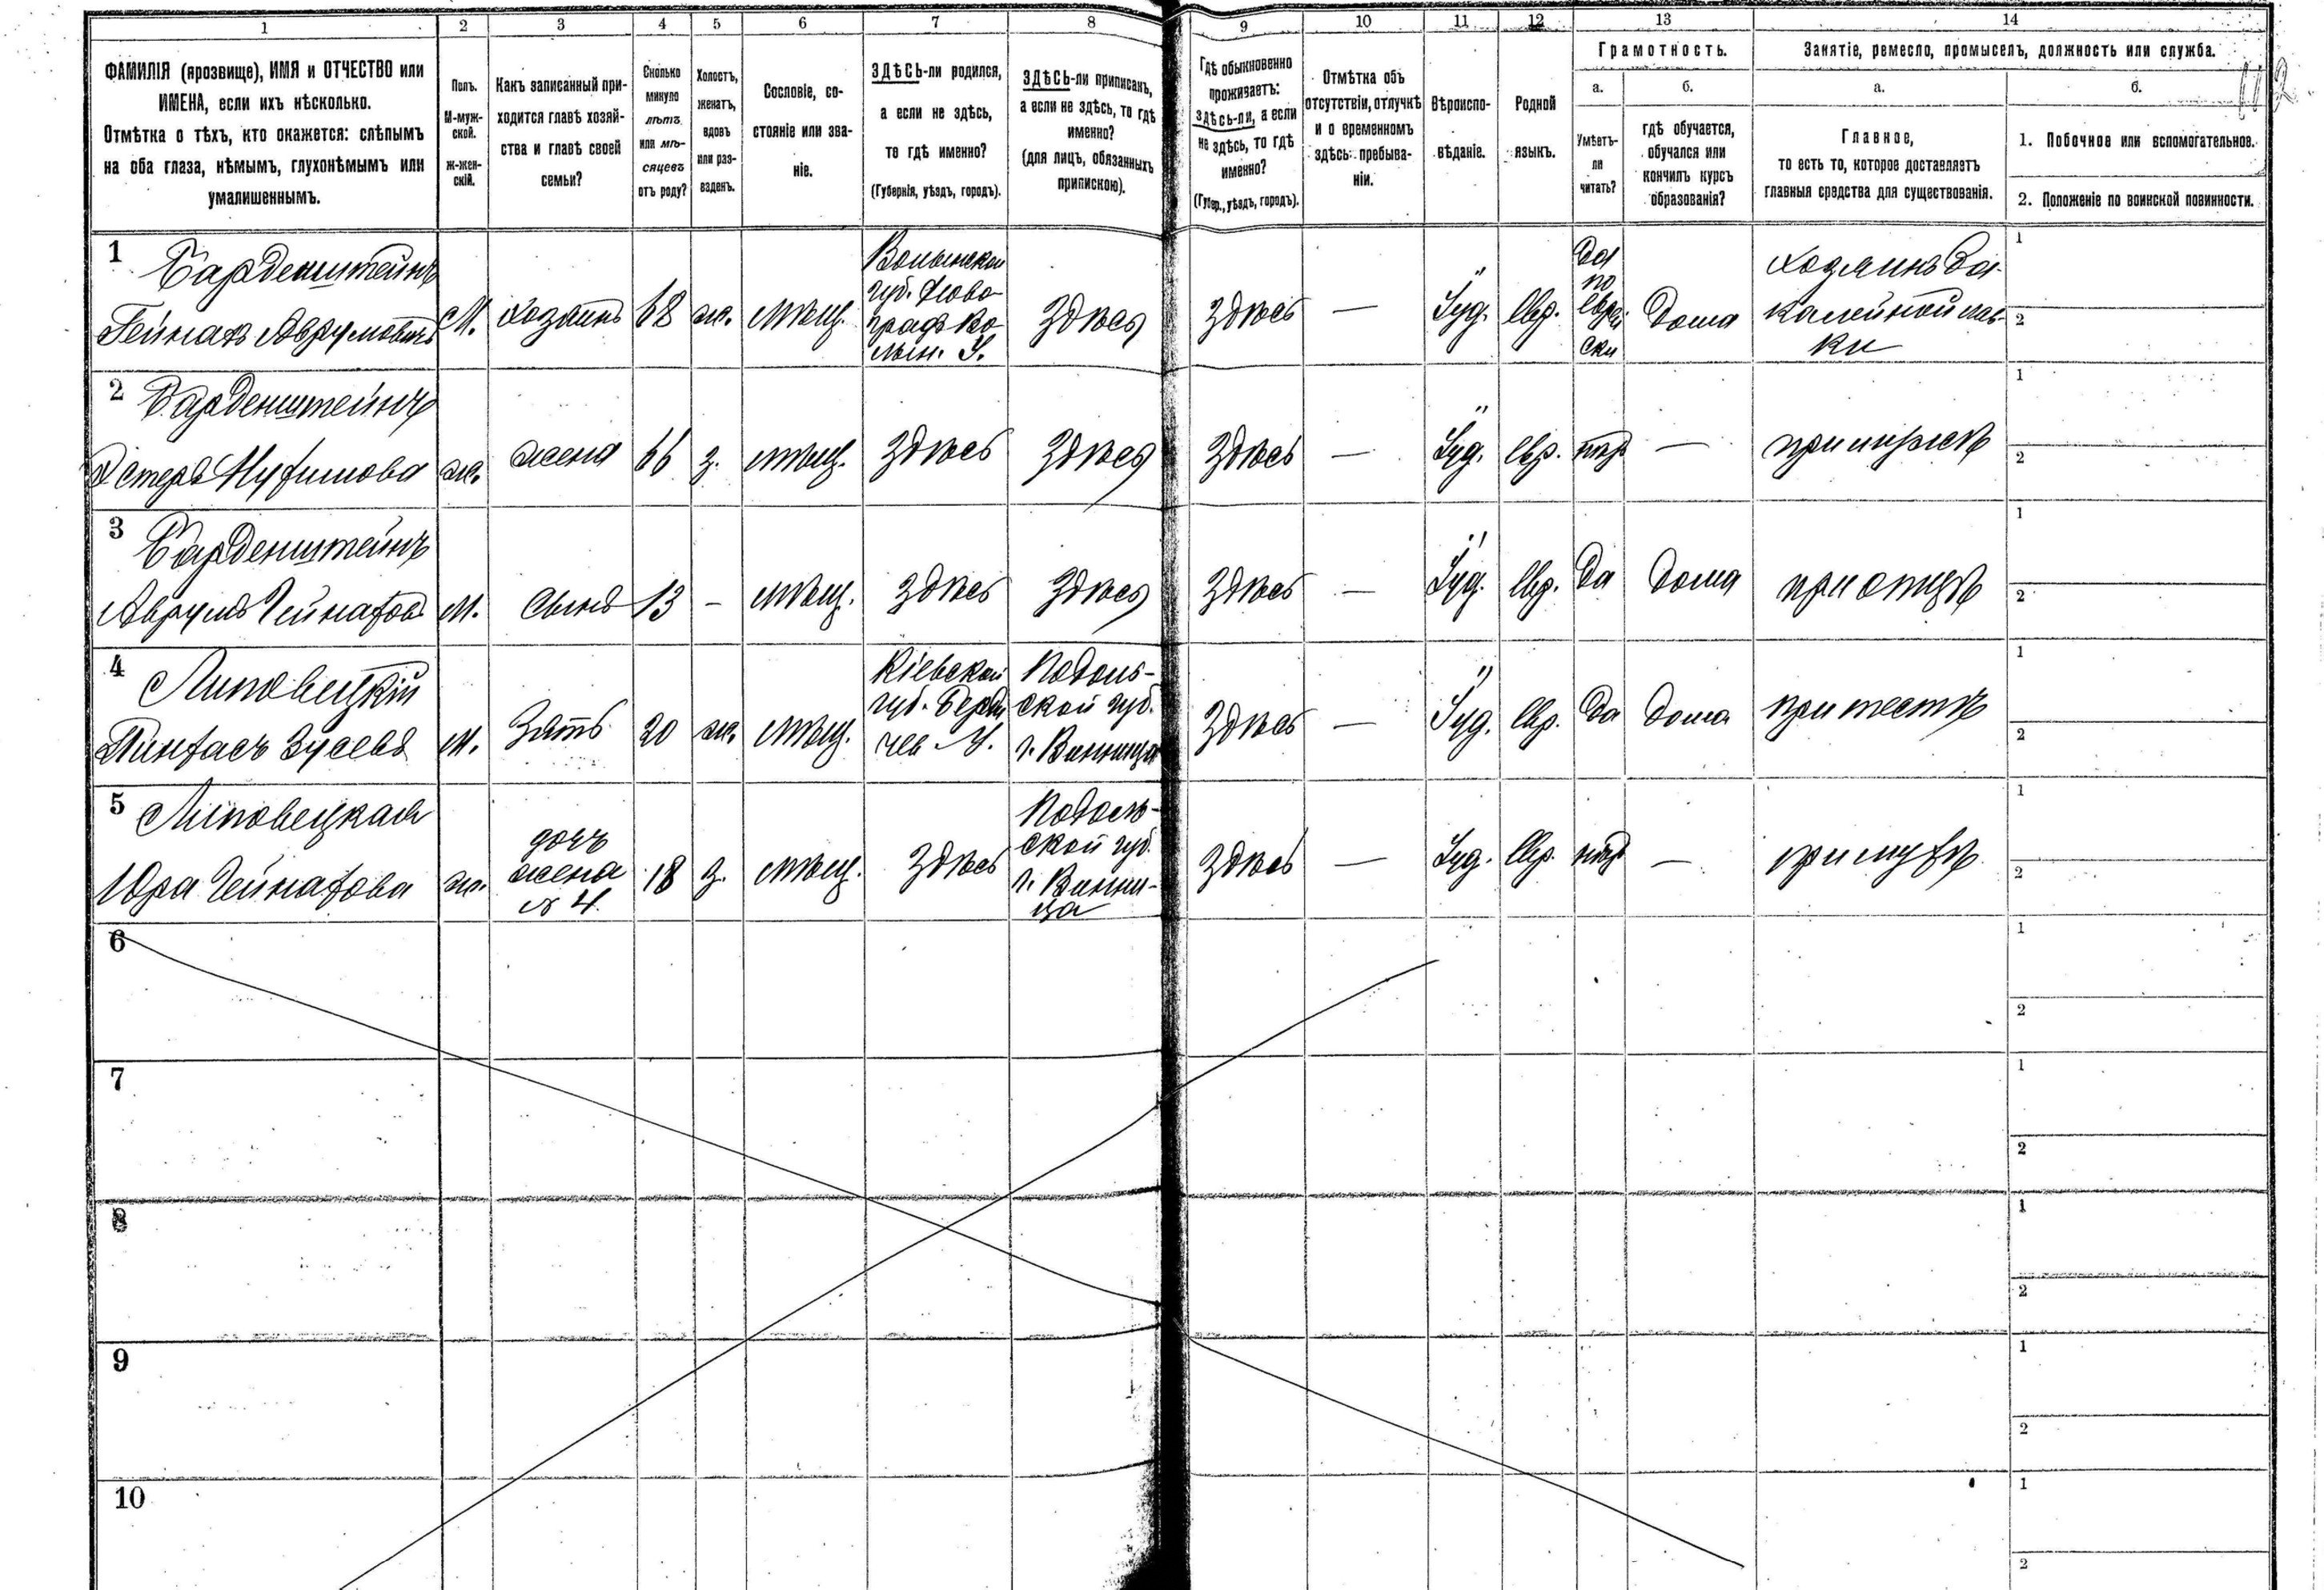 1 2 3 4 5 6 7 8 9 10 11 12 13 14
ФАМИЛІЯ (прозвище), ИМЯ и ОТЧЕСТВО или
ИМЕНА, если ихъ нѣсколько.
Отмѣтка о тѣхъ, кто окажется: слѣпымъ
на оба глаза, нѣмымъ, глухонѣмымъ или
умалишеннымъ.
Полъ.
М-муж-
ской.
Ж-жен-
скій.
Какъ записанный при-
ходится главѣ хозяй-
ства и главѣ своей
семьи?
Сколько
минуло
лѣтъ
или мѣ-
сяцевъ
отъ роду?
Холостъ,
женатъ,
вдовъ
или раз-
веденъ.
Сословіе, со-
стояніе или зва-
ніе.
ЗДѢСЬ-ли родился,
а если не здѣсь,
то гдѣ именно?
(Губернія, уѣздъ, городъ).
ЗДѢСЬ-ли приписанъ,
а если не здѣсь, то гдѣ
именно?
(для лицъ, обязанныхъ
припискою).
Гдѣ обыкновенно
проживаетъ:
здѣсь-ли, а если
не здѣсь, то гдѣ
именно?
(Губер., уѣздъ, городъ).
Отмѣтка объ
отсутствіи, отлучкѣ
и о временномъ
здѣсь пребыва-
ніи.
Вѣроиспо-
вѣданіе.
Родной
языкъ.
Грамотность.
а.
Умѣетъ-
ли
читать?
б.
гдѣ обучается,
обучался или
кончилъ курсъ
образованія?
Занятіе, ремесло, промыселъ, должность или служба.
а.
Главное,
то есть то, которое доставляетъ
главныя средства для существованія.
б.
1. Побочное или вспомогательное.
2. Положеніе по воинской повинности.
1
Барденштейнъ
Гейнахъ Аврумовъ
М.
хозяинъ
68
ж.
мѣщ.
Волынской
губ. Ново-
градъ Во-
лын. У.
Здѣсь
Здѣсь
—
Іуд.
Евр.
Да
по
еврей
ски
Дома
Хозяинъ ба-
калейной лав-
ки
1
2
2
Барденштейнъ
Эстеръ
ж.
жена
66
з.
мѣщ.
Здѣсь
Здѣсь
Здѣсь
—
Іуд.
Евр.
нѣтъ
—
при мужѣ
1
2
3
Барденштейнъ
Аврумъ Гейнаховъ
М.
Сынъ
13
–
мѣщ.
Здѣсь
Здѣсь
Здѣсь
—
Іуд.
Евр.
Да
Дома
при отцѣ
1
2
4
Липовецкій
Пинхасъ Зусевъ
М.
Зять
20
ж.
мѣщ.
Кіевской
губ. Берди
чев У.
Подоль-
ской губ.
г. Винница
Здѣсь
—
Іуд.
Евр.
Да
Дома
при тестѣ
1
2
5
Липовецкая
Юра Гейнахова
ж.
дочь
жена
№ 4.
18
з.
мѣщ.
Здѣсь
Подоль-
ской губ.
г. Винни-
ца
Здѣсь
—
Іуд.
Евр.
нѣтъ
—
при мужѣ
1
2
6
1
2
7
1
2
8
1
2
9
1
2
10
1
2